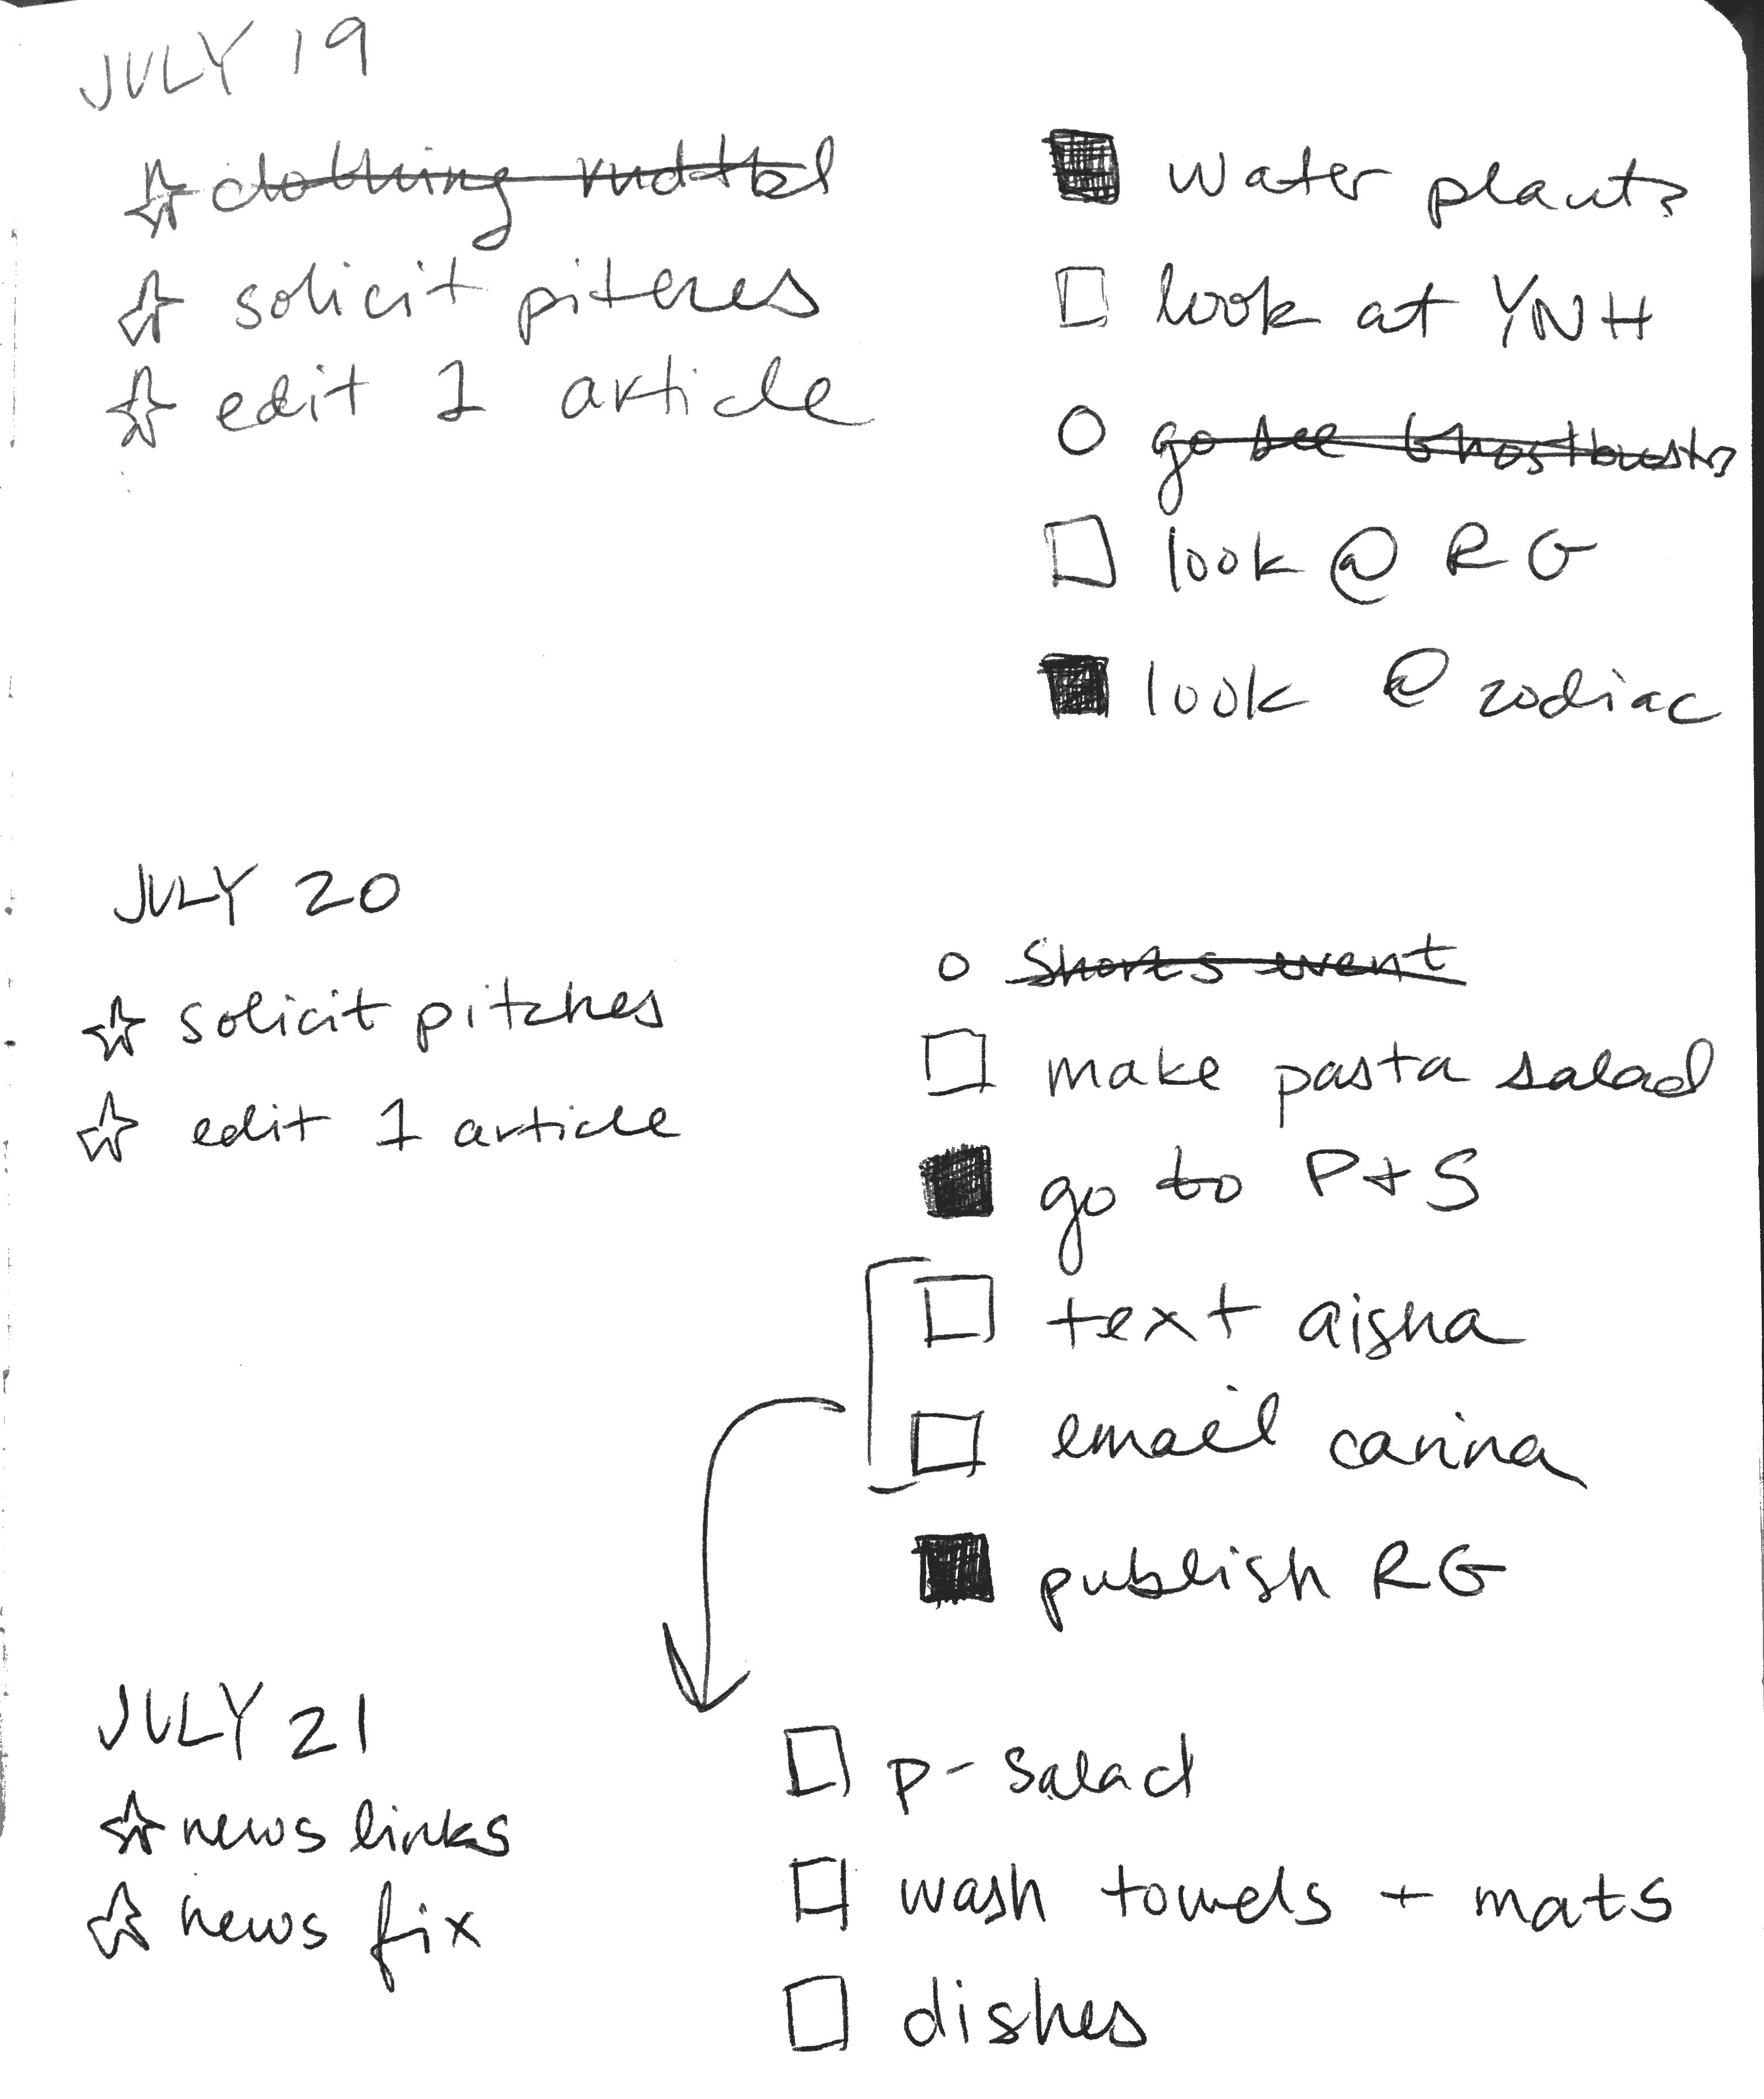 JULY 19
☆ clothing
☆ solicit pitches
☆ edit 1 article
■ water plants
□ look at YNH
○ go see Ghostbusters
□ look @ RG
■ look @ zodiac
JULY 20
☆ solicit pitches
☆ edit 1 article
○ Shorts event
□ make pasta salad
■ go to P+S
□ text aisha
□ email carina
■ publish RG
JULY 21
☆ news links
☆ news fix
□ p-salad
□ wash towels + mats
□ dishes